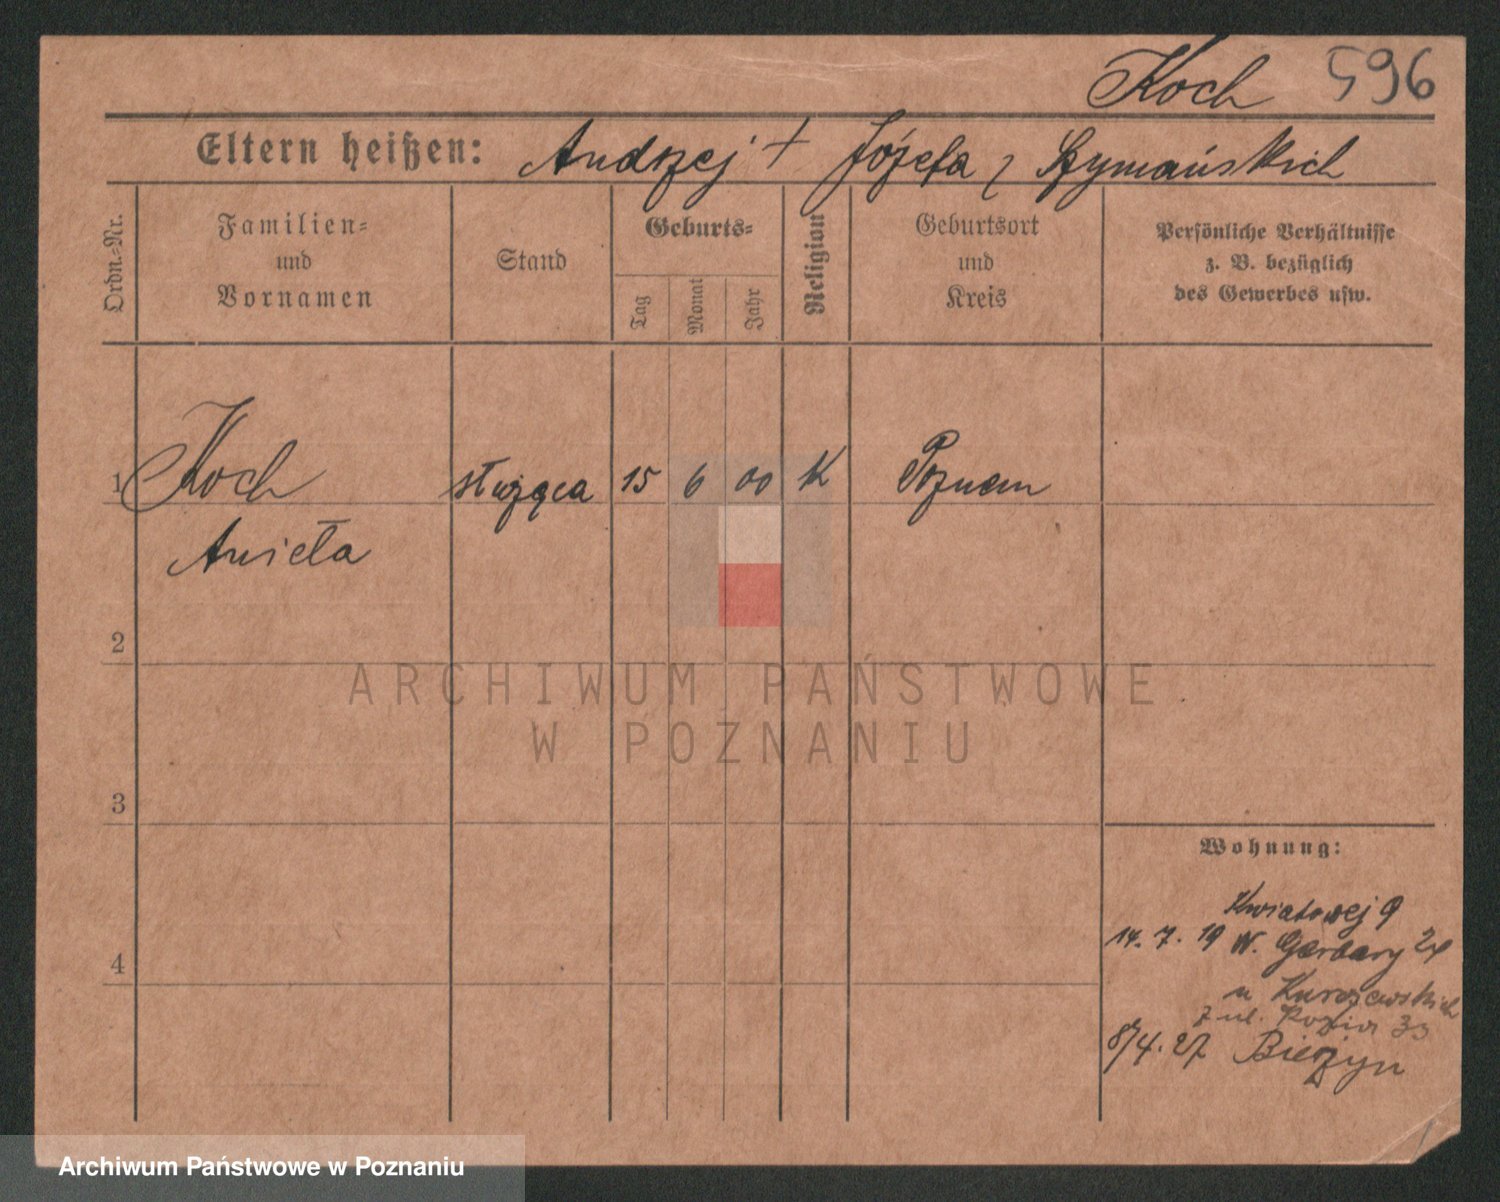 Koch 596
Eltern heißen: Andrzej + Józefa z Szymańskich
Ordn.-Nr.
Familien-
und
Vornamen
Stand
Geburts-
Tag
Monat
Jahr
Religion
Geburtsort
und
Kreis
Persönliche Verhältnisse
z. B. bezüglich
des Gewerbes usw.
1 Koch służąca 15 6 00 K Poznam
Anieła
2
ARCHIWUM PAŃSTWOWE
W POZNANIU
3
Wohnung:
Kwiatowej 9
14. 7. 19 W. Garbary
4
u
z ul. Kozia 33
8/4. 27 Bieżyn
Archiwum Państwowe w Poznaniu